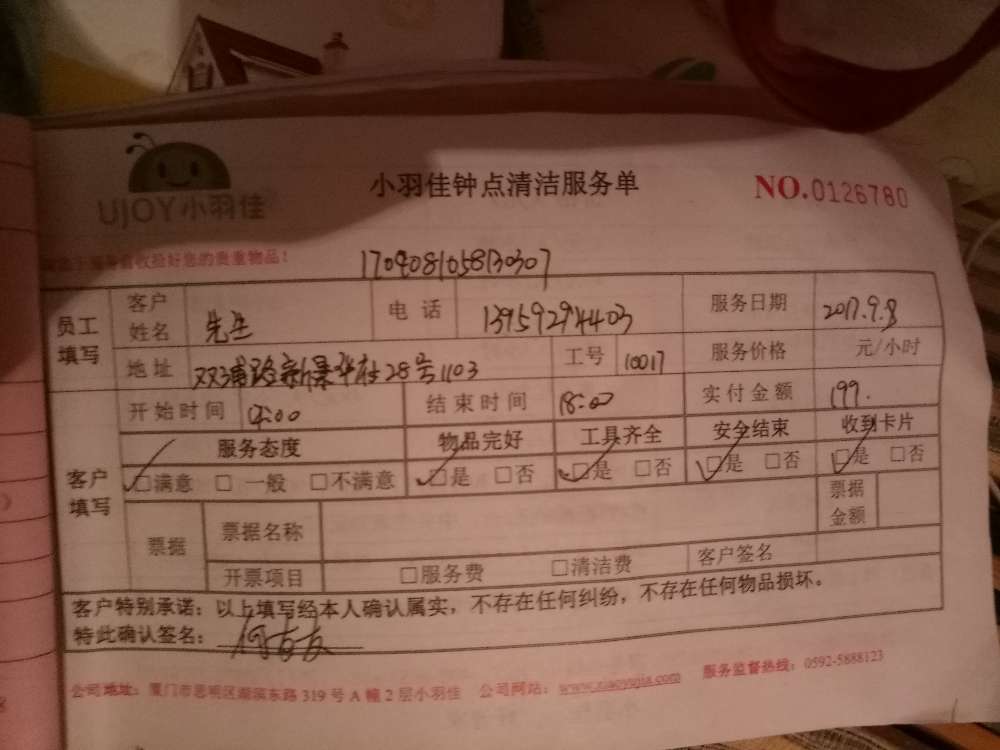 UJOY小羽佳
小羽佳钟点清洁服务单
NO.0126780
收拾好您的贵重物品！
员工填写
客户姓名 先生 电话 服务日期 2017.9.8
地址 28号1103 工号 10017 服务价格 元/小时
客户填写
开始时间 结束时间 18:00 实付金额 199.
服务态度 物品完好 工具齐全 安全结束 收到卡片
□满意 □一般 □不满意 □是 □否 □是 □否 □是 □否 □是 □否
票据 票据名称 票据金额
开票项目 □服务费 □清洁费 客户签名
客户特别承诺：以上填写经本人确认属实，不存在任何纠纷，不存在任何物品损坏。
特此确认签名：
公司地址：厦门市思明区湖滨东路 319 号 A 幢 2 层小羽佳 公司网站：www.xiaoyujia.com 服务监督热线：0592-5888123